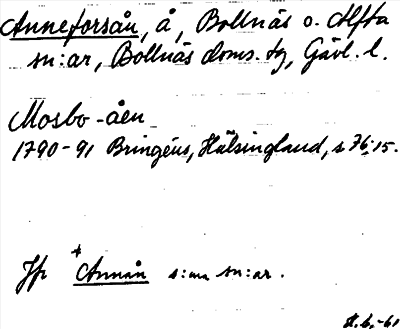 Anneforsån, å, Bollnäs o. Alfta
sn:ar, Bollnäs doms. tg, Gävl. l.
Mosbo-åen
1790-91 Bringéus, Hälsingland, s 76:15.
Jfr *Annån s:ma sn:ar.